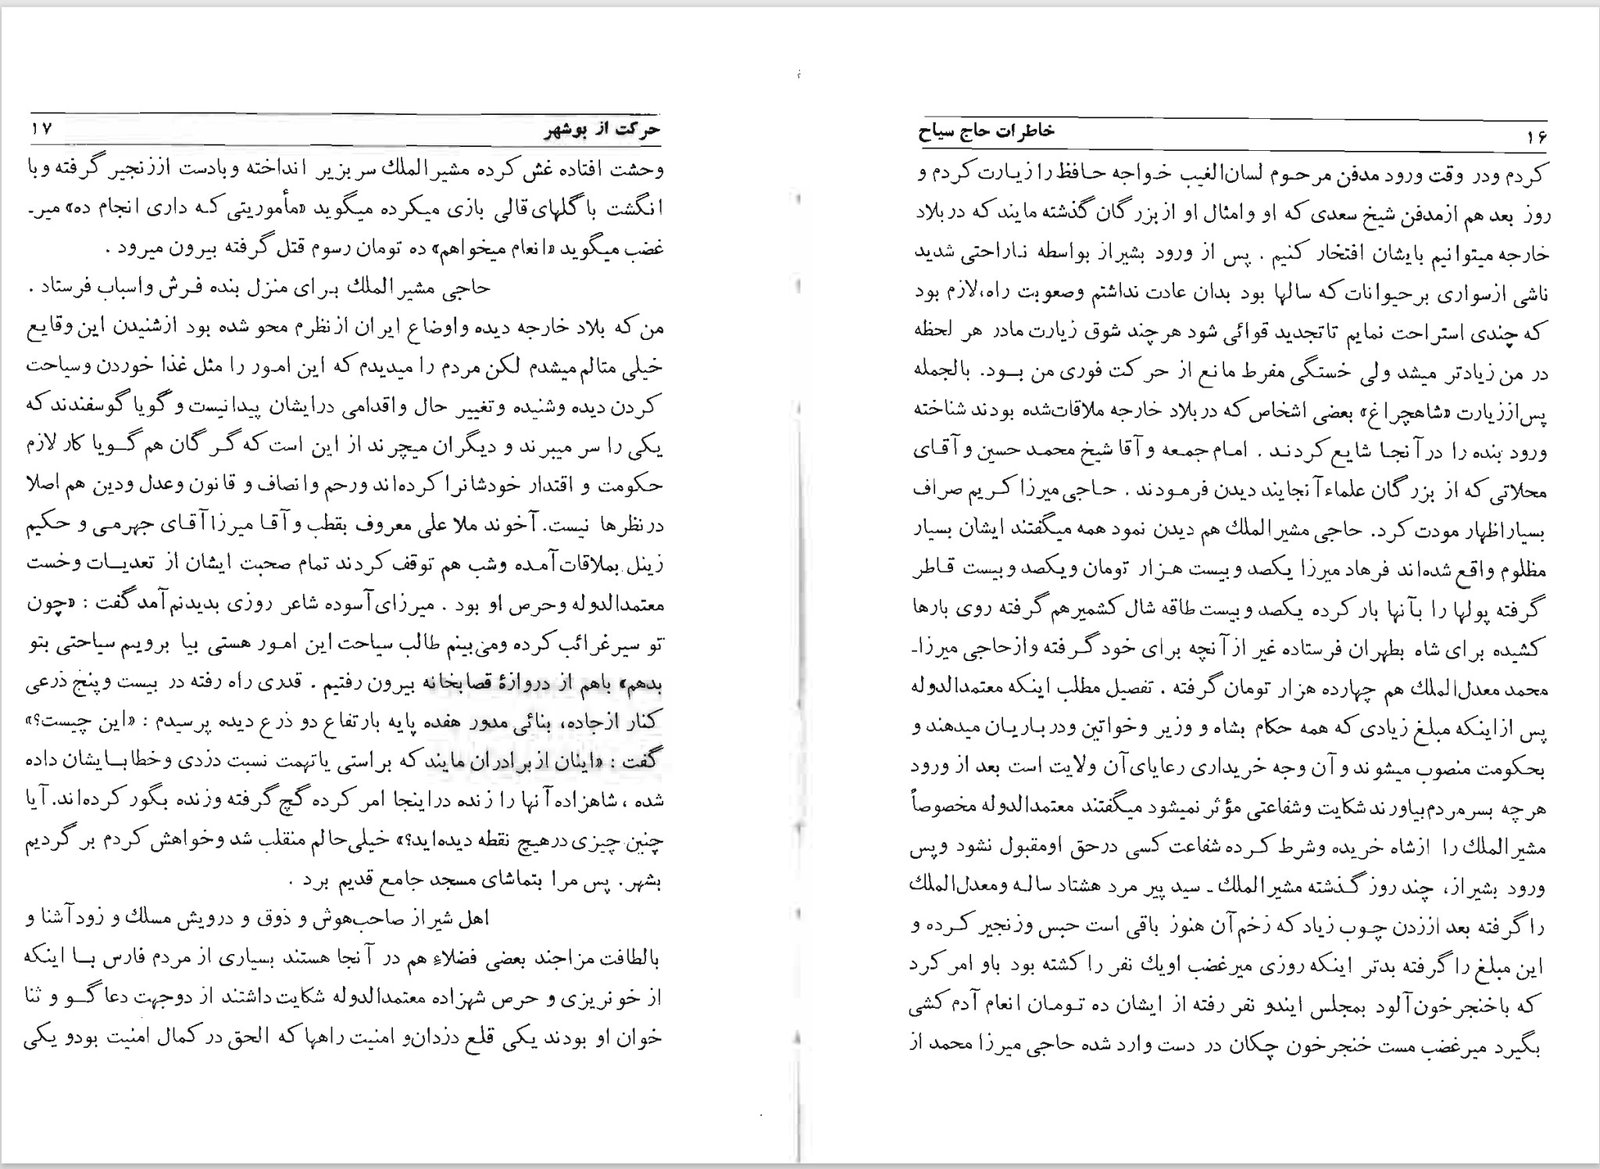 ۱۶
خاطرات حاج سیاح
کردم ودر وقت ورود مدفن مرحوم لسان‌الغیب خواجه حافظ را زیارت کردم و
روز بعد هم ازمدفن شیخ سعدی که او وامثال او از بزرگان گذشته مایند که در بلاد
خارجه میتوانیم بایشان افتخار کنیم . پس از ورود بشیراز بواسطه ناراحتی شدید
ناشی ازسواری برحیوانات که سالها بود بدان عادت نداشتم وصعوبت راه، لازم بود
که چندی استراحت نمایم تاتجدید قوائی شود هرچند شوق زیارت مادر هر لحظه
در من زیادتر میشد ولی خستگی مفرط مانع از حرکت فوری من بود. بالجمله
پس‌اززیارت «شاهچراغ» بعضی اشخاص که دربلاد خارجه ملاقات‌شده بودند شناخته
ورود بنده را درآنجا شایع کردند . امام جمعه و آقا شیخ محمد حسین و آقای
محلاتی که از بزرگان علماء آنجایند دیدن فرمودند . حاجی میرزا کریم صراف
بسیار اظهار مودت کرد. حاجی مشیرالملك هم دیدن نمود همه میگفتند ایشان بسیار
مظلوم واقع شده‌اند فرهاد میرزا یکصد و بیست هزار تومان ویکصد و بیست قاطر
گرفته پولها را بآنها بار کرده یکصد و بیست طاقه شال کشمیرهم گرفته روی بارها
کشیده برای شاه بطهران فرستاده غیر از آنچه برای خود گرفته وازحاجی میرزا-
محمد معدل‌الملك هم چهارده هزار تومان گرفته . تفصیل مطلب اینکه معتمدالدوله
پس ازاینکه مبلغ زیادی که همه حکام بشاه و وزیر وخواتین ودرباریان میدهند و
بحکومت منصوب میشوند و آن وجه خریداری رعایای آن ولایت است بعد از ورود
هرچه بسرمردم‌بیاورند شکایت وشفاعتی مؤثر نمیشود میگفتند معتمدالدوله مخصوصاً
مشیرالملك را ازشاه خریده وشرط کرده شفاعت کسی درحق اومقبول نشود وپس
ورود بشیراز، چند روز گذشته مشیرالملك - سید پیر مرد هشتاد ساله ومعدل‌الملك
را گرفته بعد اززدن چوب زیاد که زخم آن هنوز باقی است حبس وزنجیر کرده و
این مبلغ را گرفته بدتر اینکه روزی میرغضب اویك نفر را کشته بود باو امر کرد
که باخنجر خون‌آلود بمجلس ایندو نفر رفته از ایشان ده تومان انعام آدم کشی
بگیرد میرغضب مست خنجر خون چکان در دست وارد شده حاجی میرزا محمد از
حرکت از بوشهر
۱۷
وحشت افتاده غش کرده مشیرالملك سر بزیر انداخته وبادست اززنجیر گرفته وبا
انگشت با گلهای قالی بازی میکرده میگوید «مأموریتی که داری انجام ده» میر-
غضب میگوید «انعام میخواهم» ده تومان رسوم قتل گرفته بیرون میرود .
حاجی مشیرالملك برای منزل بنده فرش واسباب فرستاد .
من که بلاد خارجه دیده واوضاع ایران ازنظرم محو شده بود ازشنیدن این وقایع
خیلی متالم میشدم لکن مردم را میدیدم که این امور را مثل غذا خوردن وسیاحت
کردن دیده وشنیده وتغییر حال واقدامی درایشان پیدانیست و گویا گوسفندند که
یکی را سر میبرند و دیگران میچرند از این است که گرگان هم گویا کار لازم
حکومت و اقتدار خودشانرا کرده‌اند ورحم وانصاف و قانون وعدل ودین هم اصلا
درنظرها نیست. آخوند ملا علی معروف بقطب و آقا میرزا آقای جهرمی و حکیم
زینل بملاقات آمده وشب هم توقف کردند تمام صحبت ایشان از تعدیات وخست
معتمدالدوله وحرص او بود . میرزای آسوده شاعر روزی بدیدنم آمد گفت : «چون
تو سیرغرائب کرده ومی‌بینم طالب سیاحت این امور هستی بیا برویم سیاحتی بتو
بدهم» باهم از دروازهٔ قصابخانه بیرون رفتیم . قدری راه رفته در بیست وپنج ذرعی
کنار ازجاده، بنائی مدور هفده پایه بارتفاع دو ذرع دیده پرسیدم : «این چیست؟»
گفت : «اینان از برادران مایند که براستی یاتهمت نسبت دزدی وخطا بایشان داده
شده ، شاهزاده آنها را زنده دراینجا امر کرده گچ گرفته وزنده بگور کرده‌اند. آیا
چنین چیزی درهیچ نقطه دیده‌اید؟» خیلی حالم منقلب شد وخواهش کردم برگردیم
بشهر. پس مرا بتماشای مسجد جامع قدیم برد .
اهل شیراز صاحب‌هوش و ذوق و درویش مسلك و زود آشنا و
بالطافت مزاجند بعضی فضلاء هم در آنجا هستند بسیاری از مردم فارس با اینکه
از خونریزی و حرص شهزاده معتمدالدوله شکایت داشتند از دوجهت دعاگو و ثنا
خوان او بودند یکی قلع دزدان‌و امنیت راهها که الحق در کمال امنیت بودو یکی